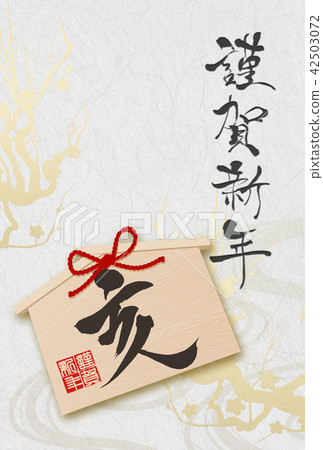 謹賀新年
亥
謹賀
新年
PIXTA
42503072